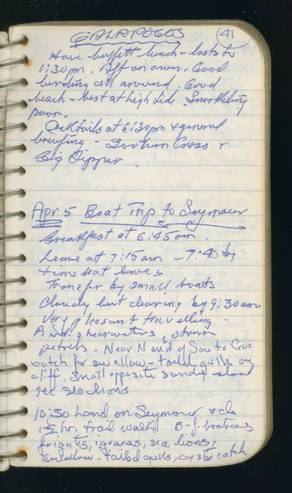 GALAPAGOS 41
Have buffett lunch - lasts to
1:30pm. Off on own. Good
birding all around. Good
beach - best at high tide. Snorkeling
poor.
Cocktails at 6:30pm & general
briefing - Southern Cross &
Big Dipper.
Apr 5 Boat Trip to Seymour
Breakfast at 6:45am.
Leave at 7:15am - 7:40 by
time boat leaves
Transfer by small boats
Cloudy but clearing by 9:30am
Very pleasant travelling.
Aud. shearwaters & storm
petrels. Near N end of Santa Cruz
watch for swallow-tailed gulls on
cliff. Small opposite sandy island
see sea lions
10:30 Land on Seymour
1½ hr. trail walk. B-f. boobies
frigates, iguanas, sea lions,
swallow-tailed gulls, oystercatch